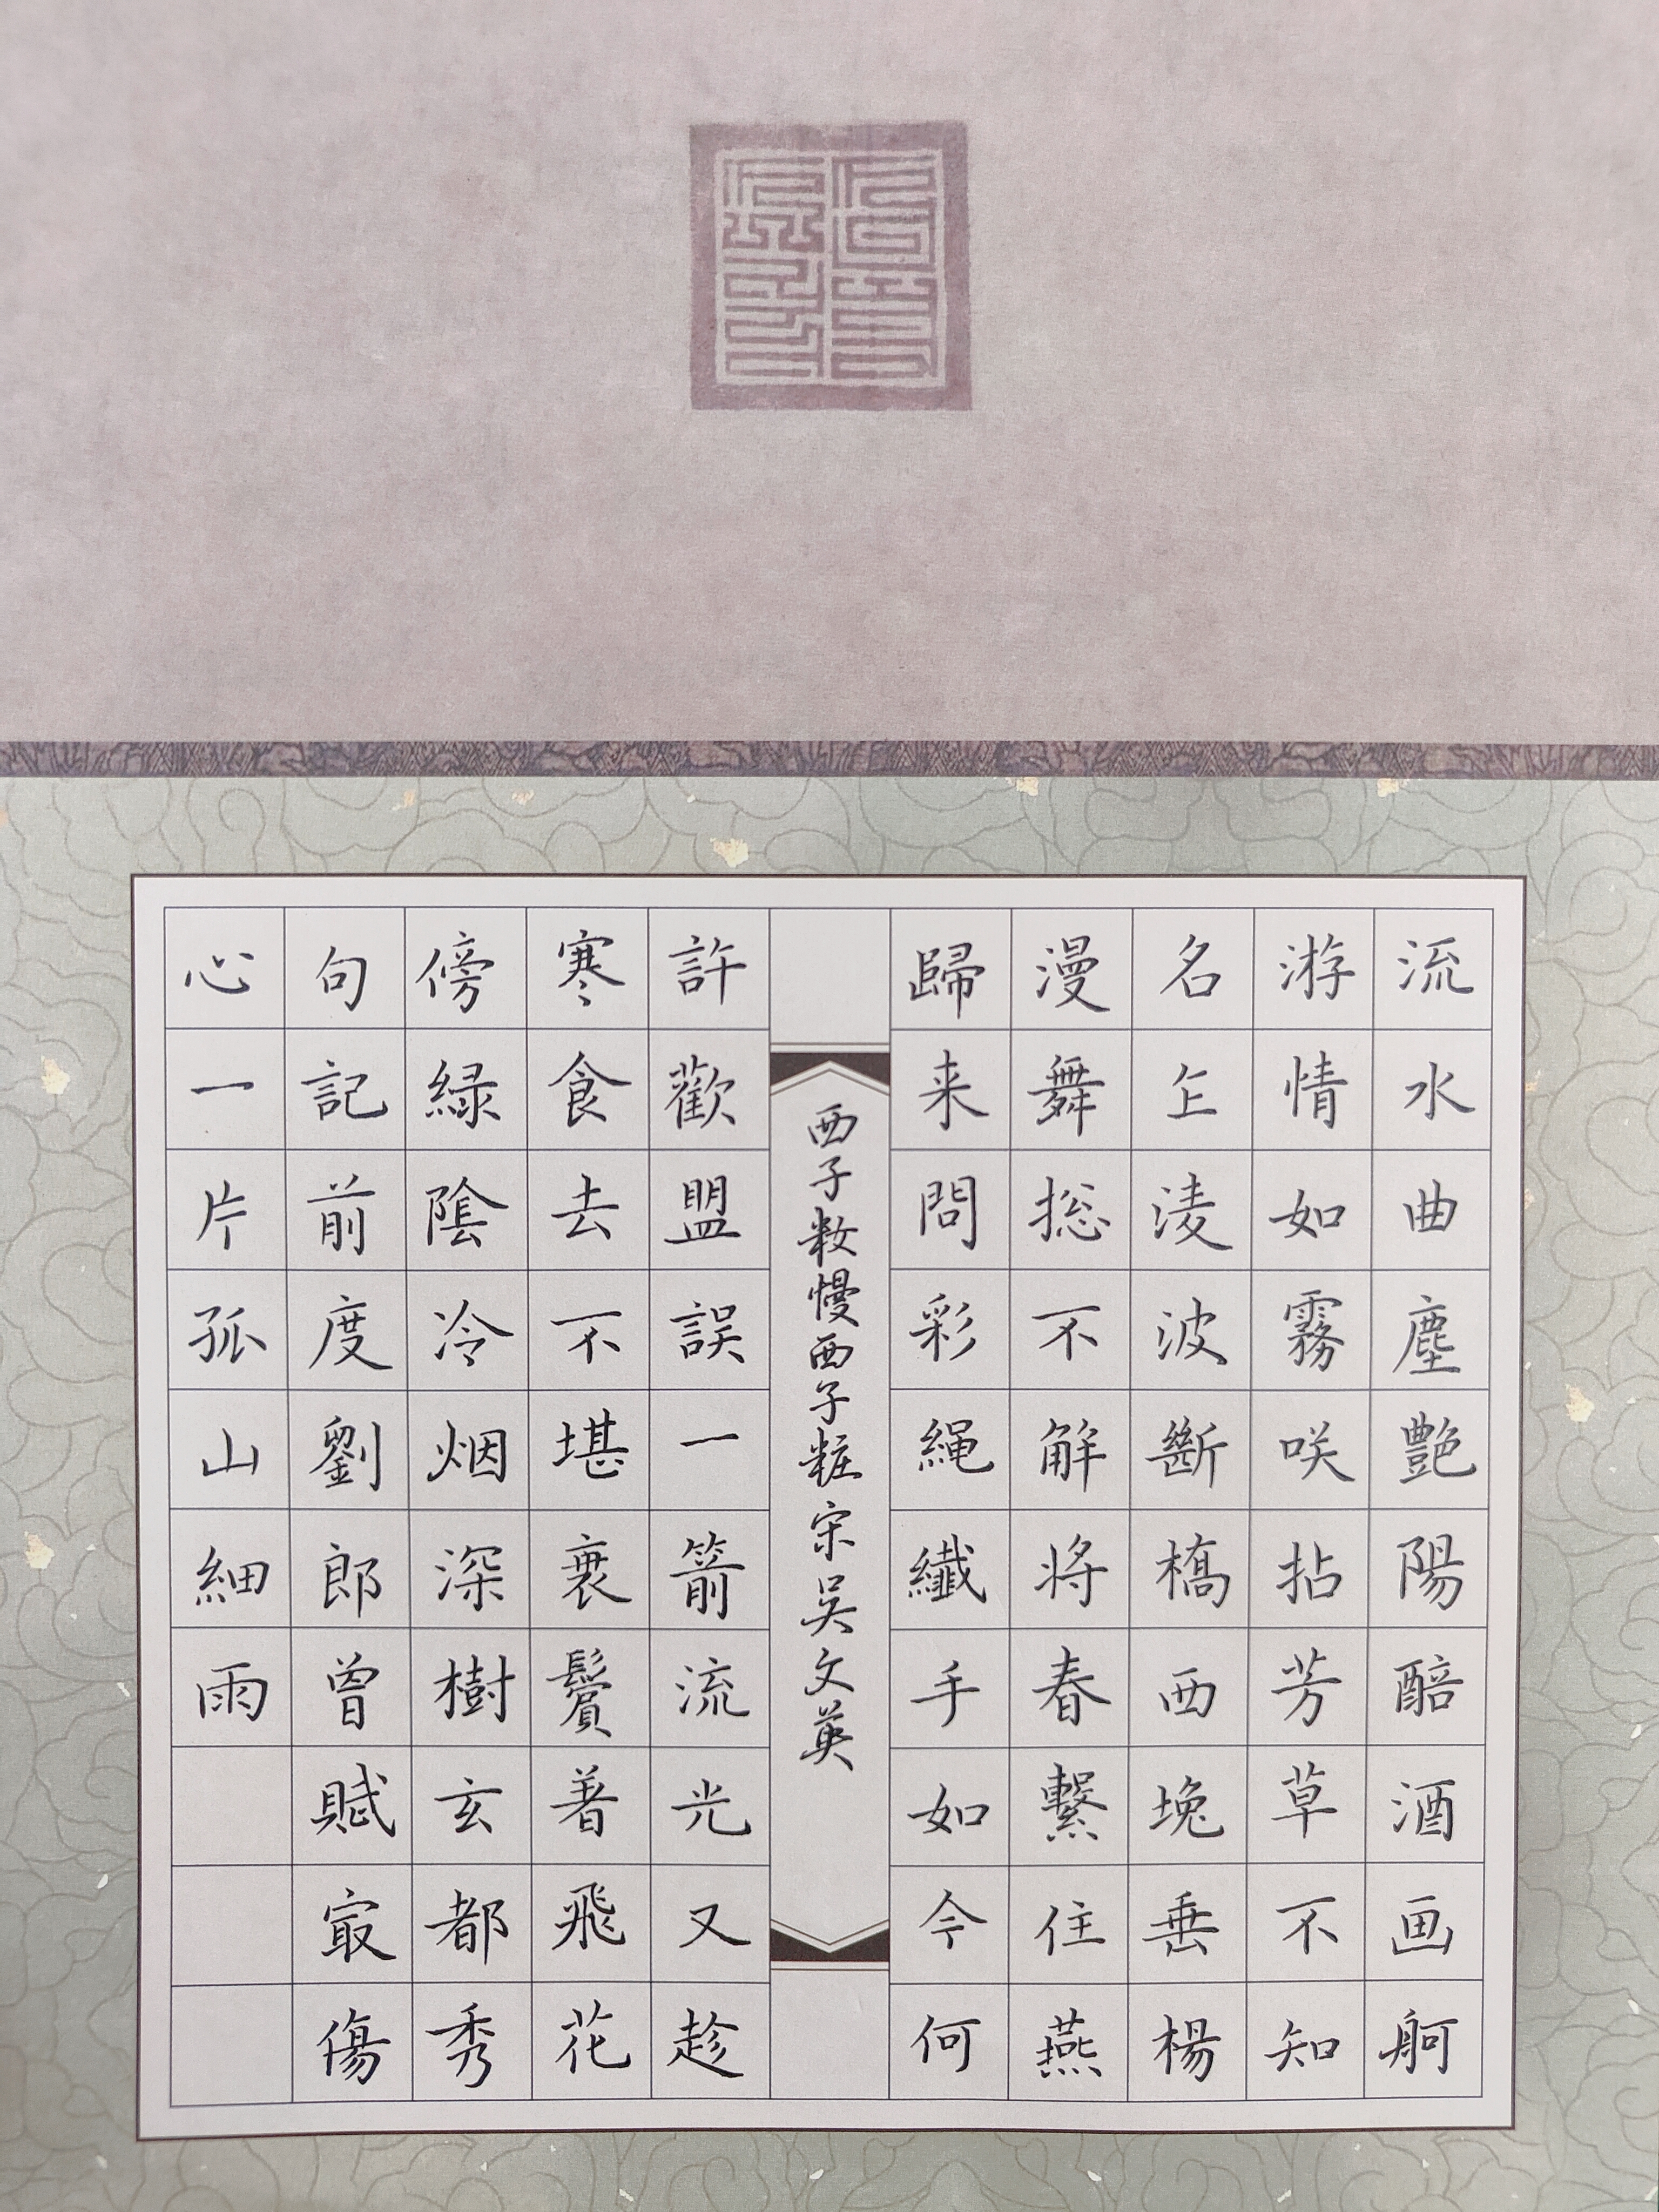 流水曲塵艷陽醅酒画舸
游情如霧咲拈芳草不知
名㐄淩波斷橋西堍垂楊
漫舞捴不解将春繫住燕
歸来問彩繩纖手如今何
西子妝慢西子粧宋吳文英
許歡盟誤一箭流光又趁
寒食去不堪衰鬢著飛花
傍緑陰冷烟深樹玄都秀
句記前度劉郎曾賦㝡傷
心一片孤山細雨